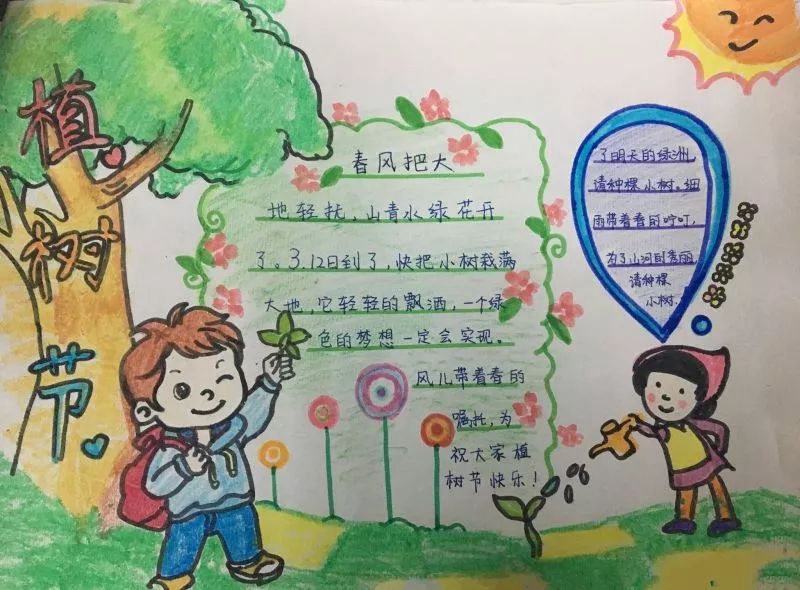 植
树
节
春风把大
地轻抚，山青水绿花开
了。3.12日到了，快把小树栽满
大地，它轻轻的飘洒，一个绿
色的梦想一定会实现。
风儿带着春的
嘱托，为
祝大家植
树节快乐！
了明天的绿洲
请种棵小树。细
雨带着春的咛叮，
为了山河的秀丽
请种棵
小树.